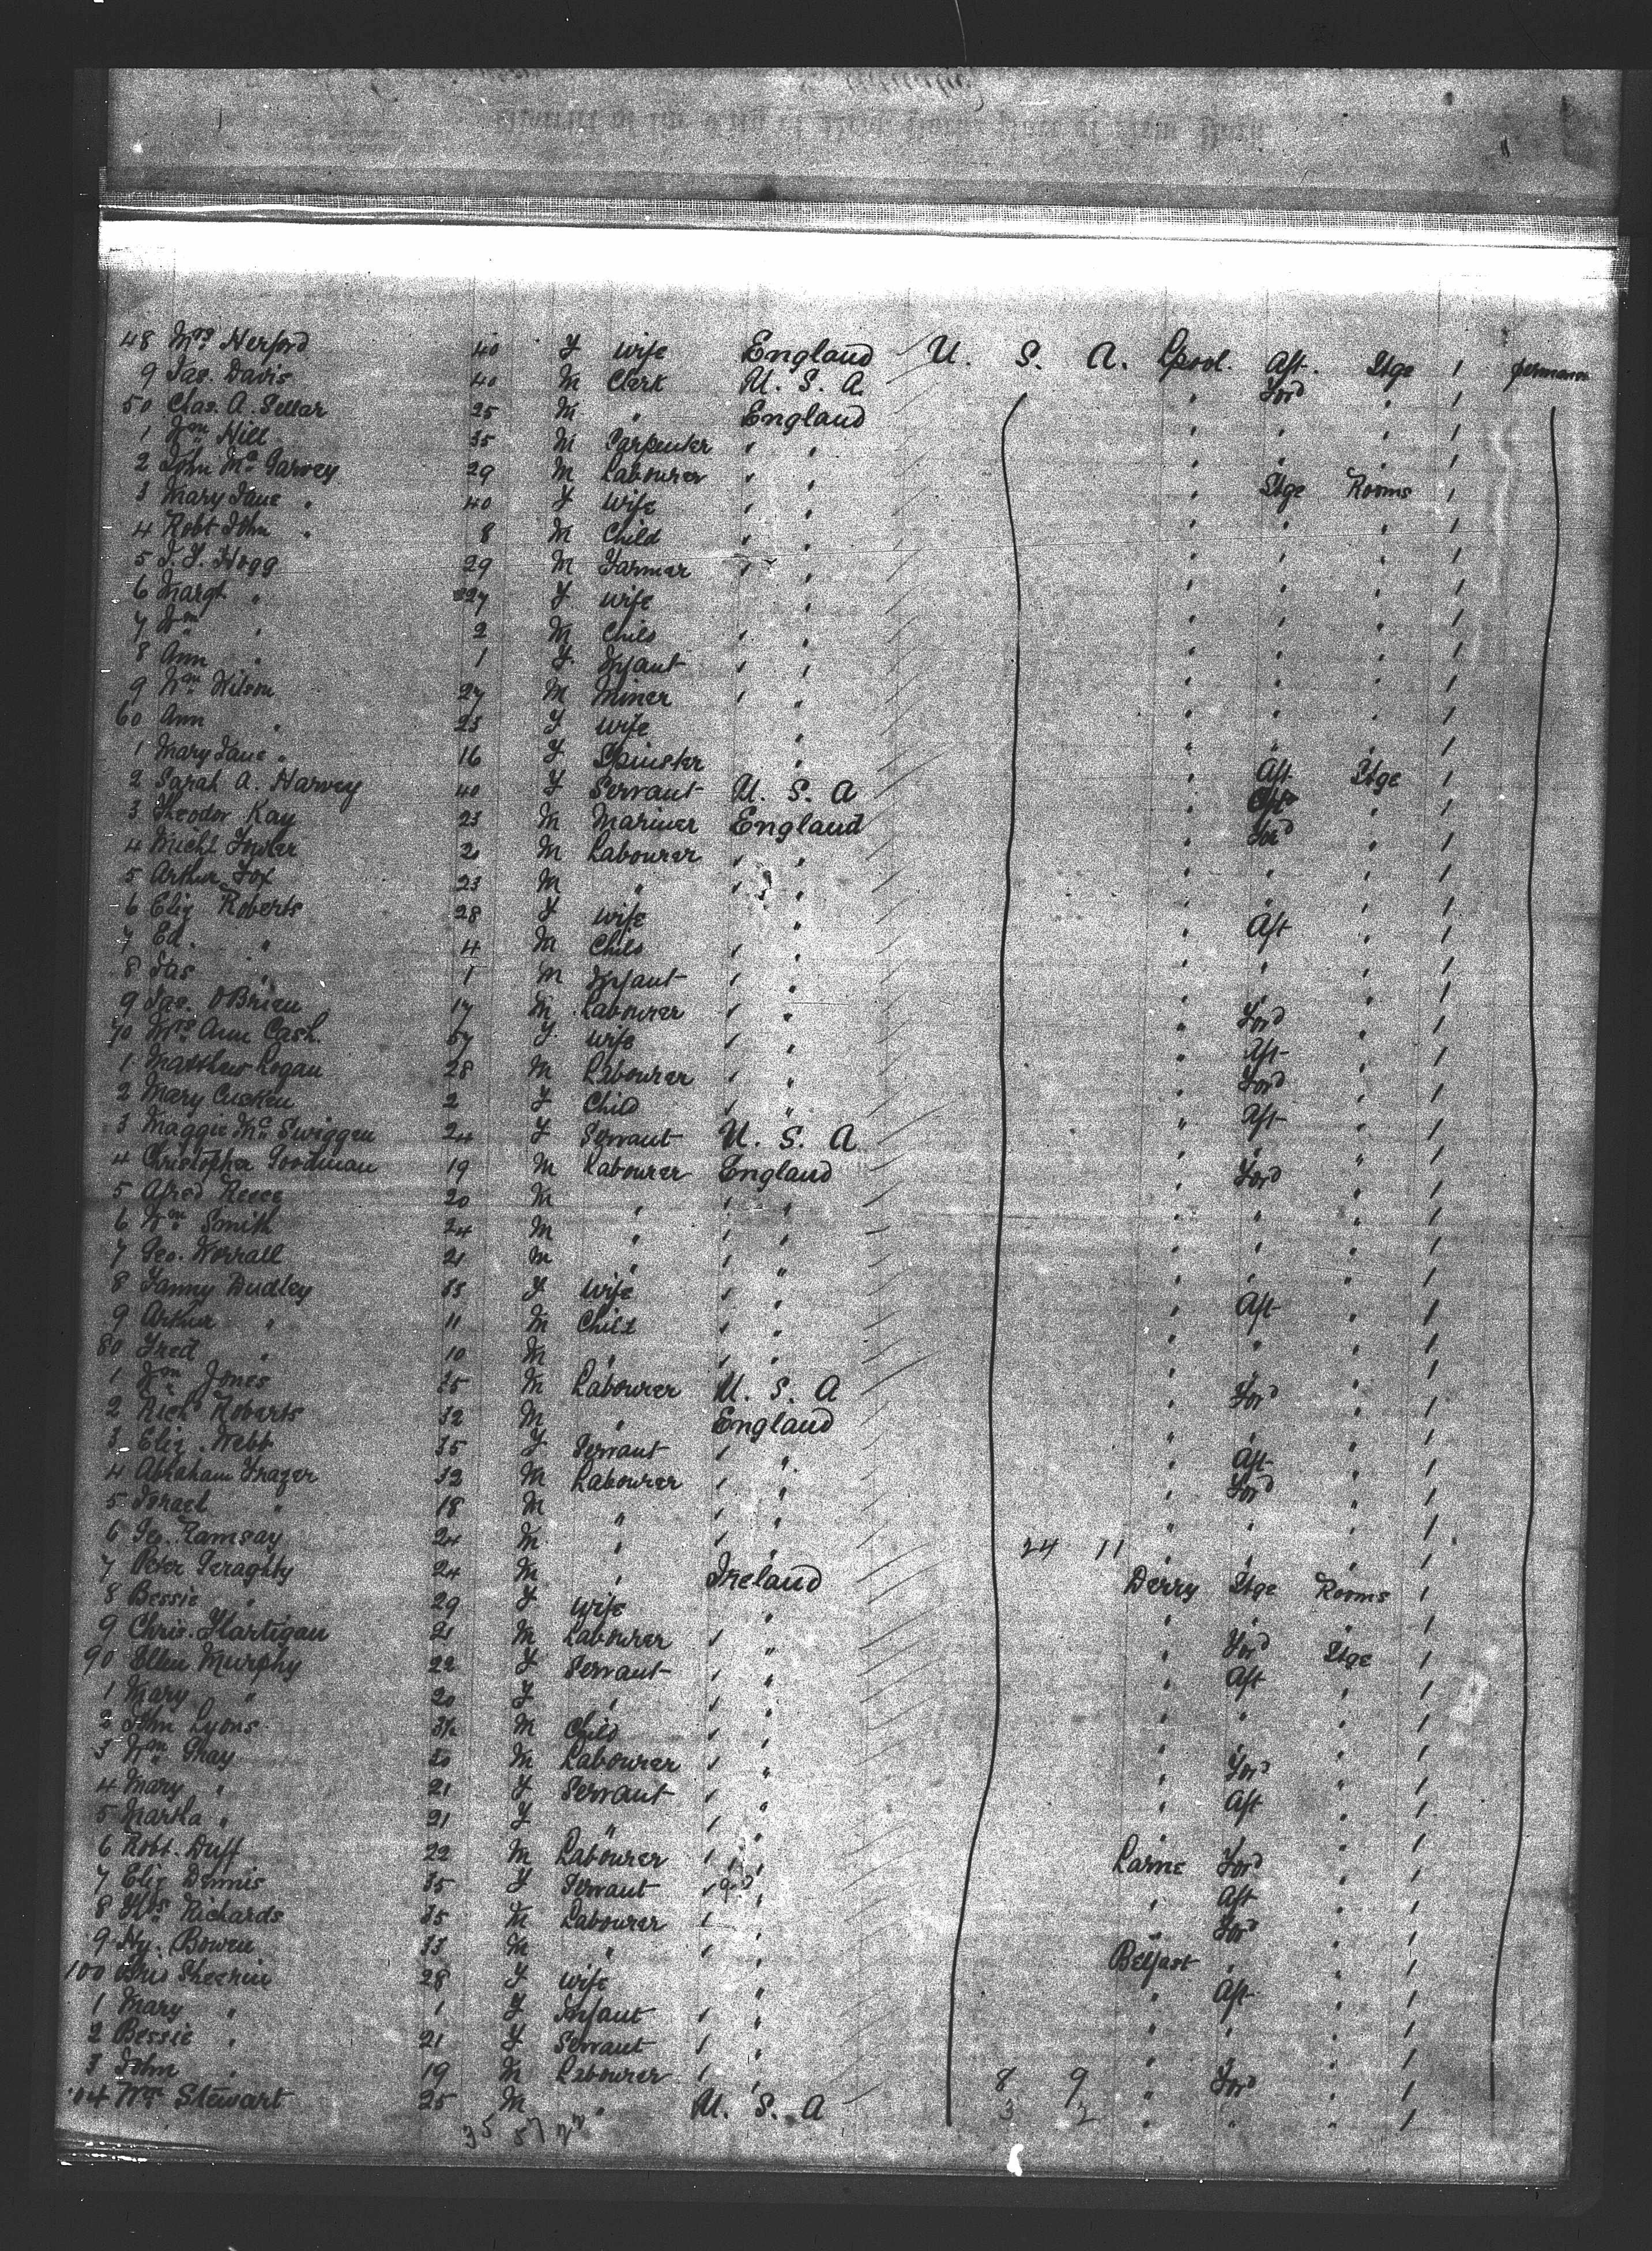 48 Mrs Herford 40 F Wife England U. S. A. Lpool. Aft. Stge 1 permanent
9 Jas. Davis 40 M Clerk U. S. A. " Ford " 1
50 Chas. A. Sellar 25 M " England " " " 1
1 Wm Hill 35 M Carpenter " " " " " 1
2 John McGarvey 29 M Labourer " " " Stge Rooms 1
3 Mary Jane " 40 F Wife " " " " " 1
4 Robt John " 8 M Child " " " " " 1
5 J. Y. Hogg 29 M Farmer " " " " " 1
6 Margt " 27 F Wife " " " " 1
7 Wm " 2 M Child " " " " " 1
8 Ann " 1 F Infant " " " " " 1
9 Wm Wilson 27 M Miner " " " " " 1
60 Ann " 25 F Wife " " " " 1
1 Mary Jane " 16 F Spinster " " " " 1
2 Sarah A. Harvey 40 F Servant U. S. A " Aft Stge 1
3 Theodor Kay 23 M Mariner England " Ford " 1
4 Michl Fowler M Labourer " " " " " 1
5 Arthur Fox 23 M " " " " " " 1
6 Eliz Roberts 28 F Wife " " Aft " 1
7 Ed. " 4 M Child " " " " " 1
8 Jas " 1 M Infant " " " " " 1
9 Jas. O'Brien 17 M Labourer " " " Ford " 1
70 Mrs Ann Cash 57 F Wife " " " Aft " 1
1 Matthew Logan 28 M Labourer " " " Ford " 1
2 Mary Cucken 2 F Child " " " Aft " 1
3 Maggie McSwiggen 24 F Servant U. S. A " " " 1
4 Christopher Goodman 19 M Labourer England " Ford " 1
5 Alfred Reece 20 M " " " " " " 1
6 Wm Smith 24 M " " " " " " 1
7 Geo. Worrall 21 M " " " " " " 1
8 Fanny Dudley 35 F Wife " " " Aft " 1
9 Arthur " 11 M Child " " " " " 1
80 Fred " 10 M " " " " " " 1
1 Wm Jones 35 M Labourer U. S. A " Ford " 1
2 Richd Roberts 32 M " England " " " 1
3 Eliz. Webb 35 F Servant " " " Aft " 1
4 Abraham Frazer 32 M Labourer " " " Ford " 1
5 Israel " 18 M " " " " " " 1
6 Geo. Ramsay 24 M " " " 24 11 " " " 1
7 Peter Geraghty 24 M " Ireland Derry Stge Rooms 1
8 Bessie " 29 F Wife " " " " 1
9 Chris. Hartigan 21 M Labourer " " " Ford Stge 1
90 Ellen Murphy 22 F Servant " " " Aft " 1
1 Mary " 20 F " " " " " " 1
2 John Lyons M Child " " " " " 1
3 Wm Gray 20 M Labourer " " " Ford " 1
4 Mary " 21 F Servant " " " Aft " 1
5 Martha " 21 F " " " " " " 1
6 Robt. Duff 22 M Labourer " " Larne Ford " 1
7 Eliz Dennis 35 F Servant " " " Aft " 1
8 Thos Richards 35 M Labourer " " " Ford " 1
9 Hy. Bowen 33 M " " " Belfast " " 1
100 Brid Sheerin 28 F Wife " " Aft " 1
1 Mary " 1 F Infant " " " " " 1
2 Bessie " 21 F Servant " " " " " 1
3 John " 19 M Labourer " " 8 9 " Ford " 1
104 Wm Stewart 25 M " U. S. A 3 2 " " " 1
35 57